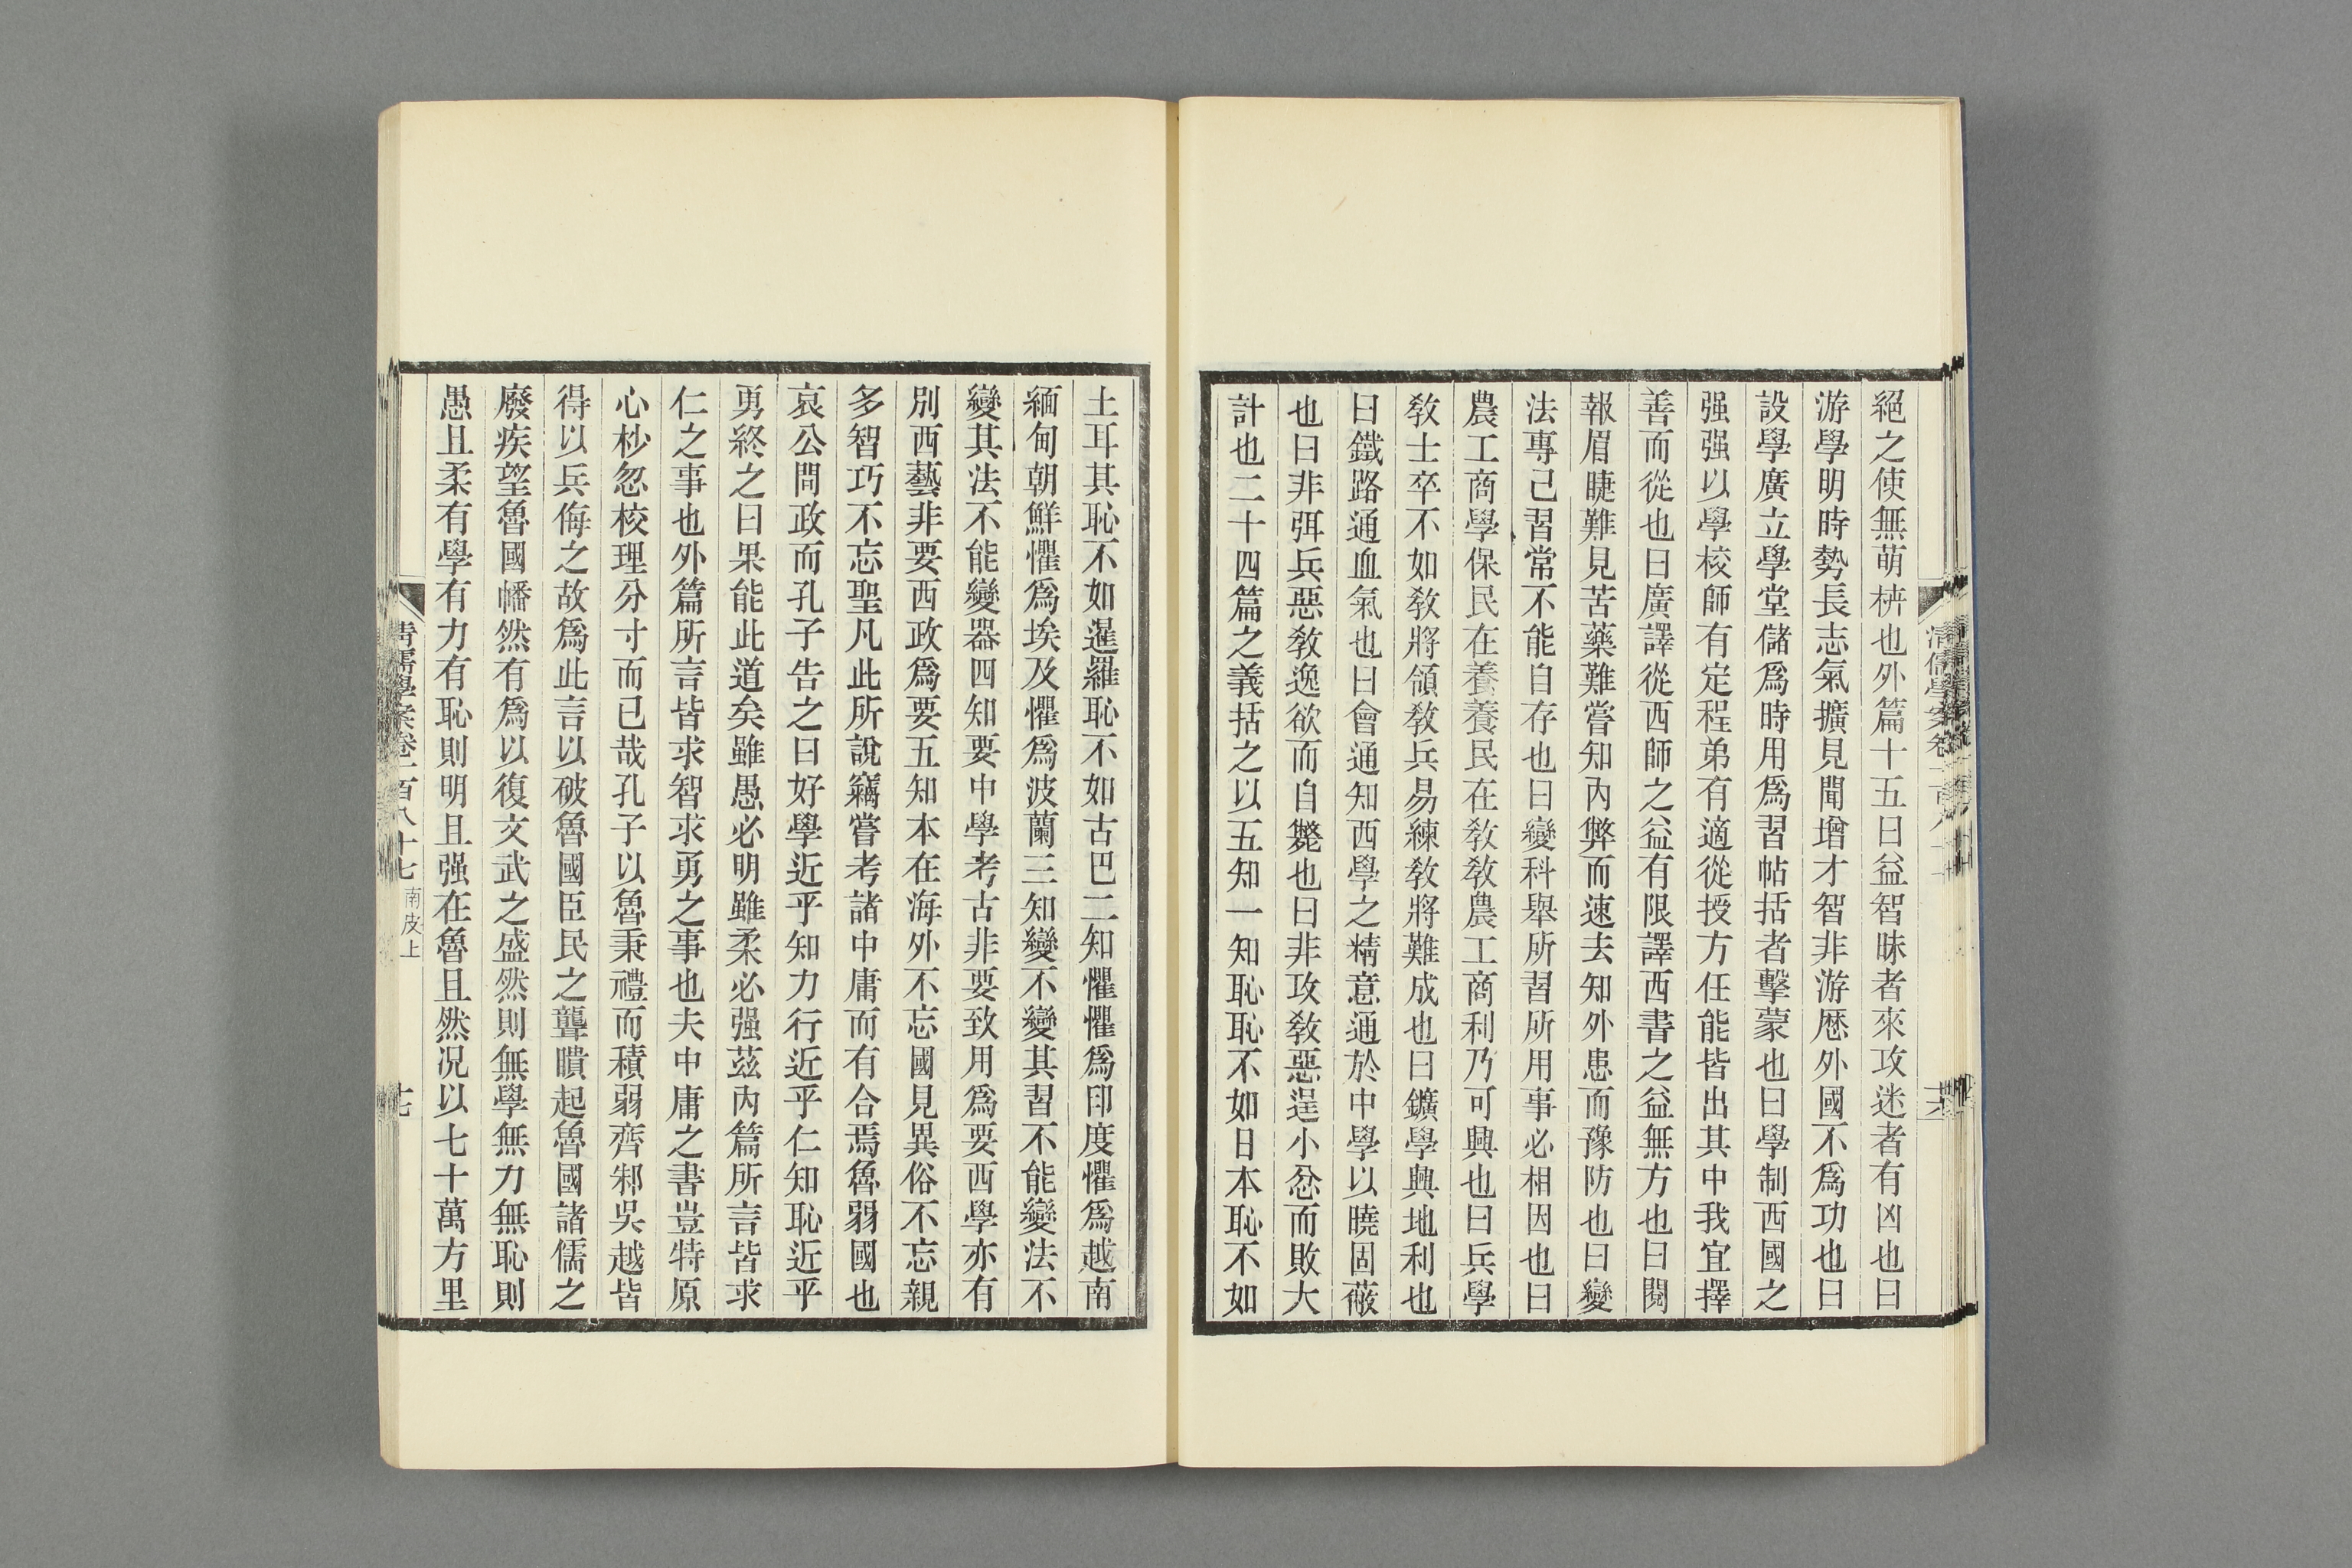 絕之使無萌枿也外篇十五曰益智昧者來攻迷者有凶也曰
游學明時勢長志氣擴見聞增才智非游歷外國不爲功也曰
設學廣立學堂儲爲時用爲習帖括者擊蒙也曰學制西國之
强强以學校師有定程弟有適從授方任能皆出其中我宜擇
善而從也曰廣譯從西師之益有限譯西書之益無方也曰閱
報眉睫難見苦藥難嘗知內弊而速去知外患而豫防也曰變
法專己習常不能自存也曰變科舉所習所用事必相因也曰
農工商學保民在養養民在敎敎農工商利乃可興也曰兵學
敎士卒不如敎將領敎兵易練敎將難成也曰鑛學興地利也
曰鐵路通血氣也曰會通知西學之精意通於中學以曉固蔽
也曰非弭兵惡敎逸欲而自斃也曰非攻敎惡逞小忿而敗大
計也二十四篇之義括之以五知一知恥恥不如日本恥不如
土耳其恥不如暹羅恥不如古巴二知懼懼爲印度懼爲越南
緬甸朝鮮懼爲埃及懼爲波蘭三知變不變其習不能變法不
變其法不能變器四知要中學考古非要致用爲要西學亦有
別西藝非要西政爲要五知本在海外不忘國見異俗不忘親
多智巧不忘聖凡此所說竊嘗考諸中庸而有合焉魯弱國也
哀公問政而孔子告之曰好學近乎知力行近乎仁知恥近乎
勇終之曰果能此道矣雖愚必明雖柔必强茲內篇所言皆求
仁之事也外篇所言皆求智求勇之事也夫中庸之書豈特原
心杪忽校理分寸而已哉孔子以魯秉禮而積弱齊邾吳越皆
得以兵侮之故爲此言以破魯國臣民之聾瞶起魯國諸儒之
廢疾望魯國幡然有爲以復文武之盛然則無學無力無恥則
愚且柔有學有力有恥則明且强在魯且然況以七十萬方里
清儒學案卷一百八十七 南皮上 十七